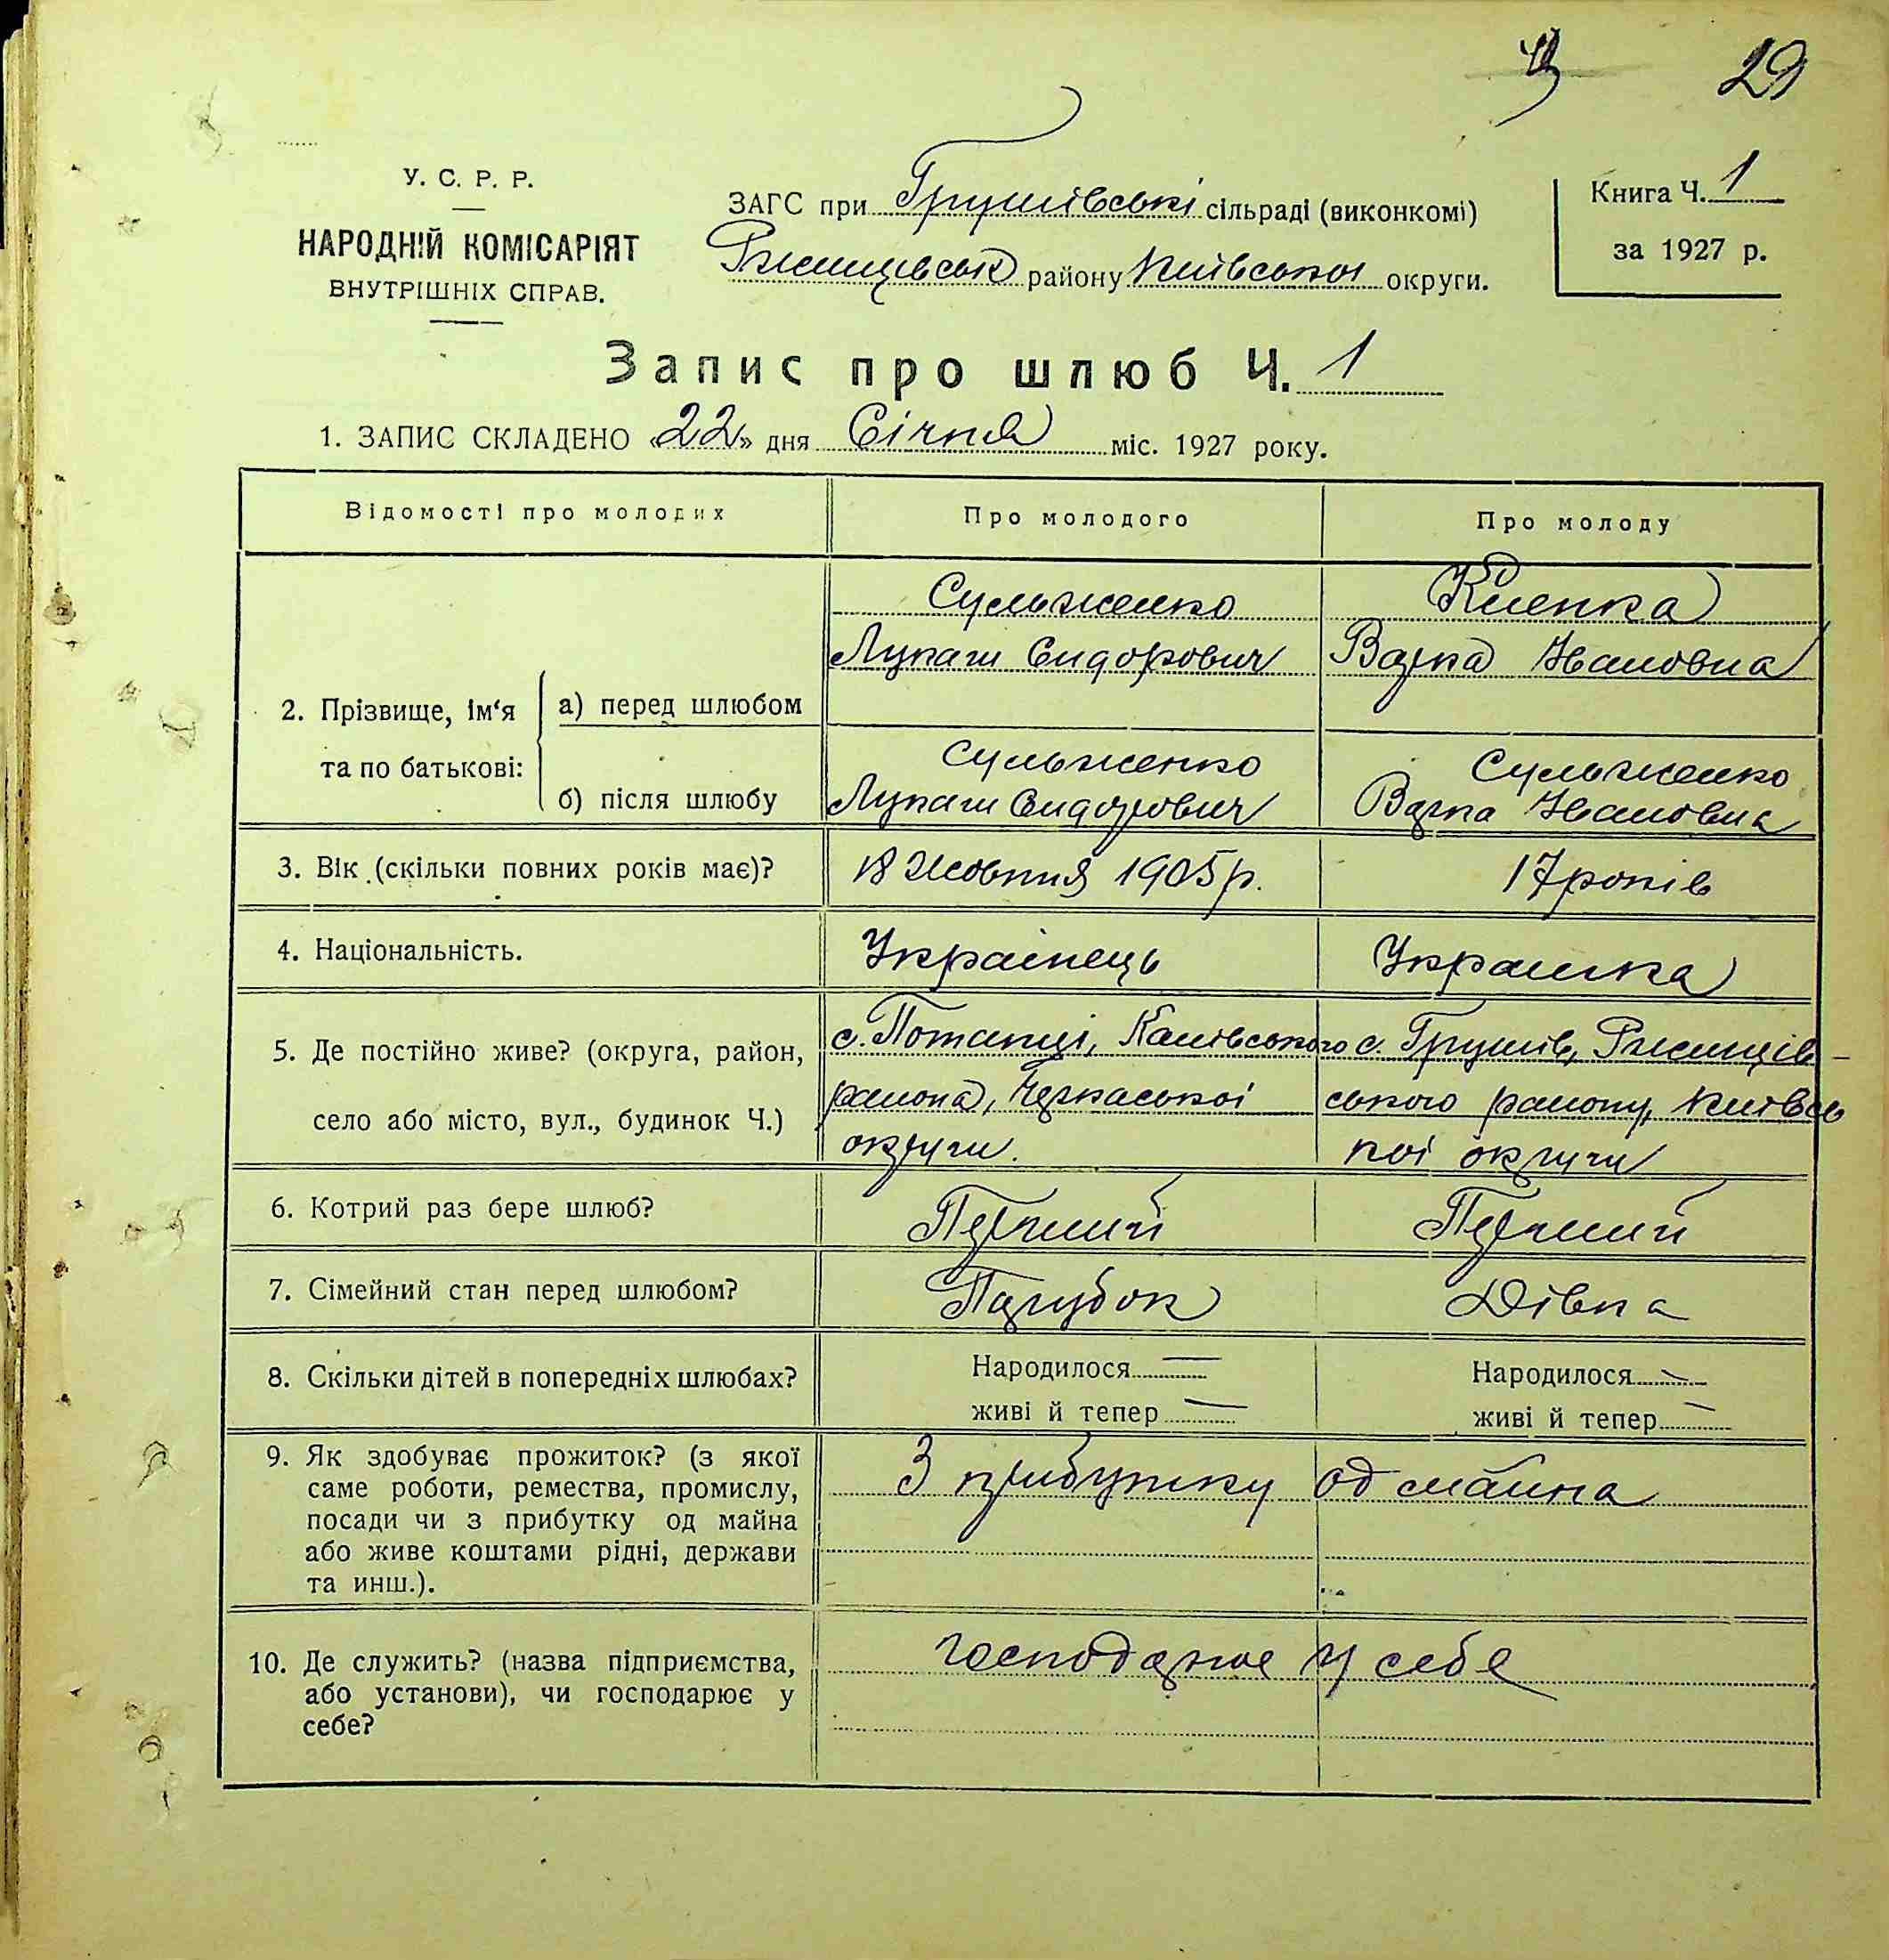 29
У. С. Р. Р.
НАРОДНІЙ КОМІСАРІЯТ
ВНУТРІШНІХ СПРАВ.
ЗАГС при Грушівські сільраді (виконкомі)
Ржищівськ району Київської округи.
Книга Ч. 1
за 1927 р.
Запис про шлюб Ч. 1
1. ЗАПИС СКЛАДЕНО «22» дня Січня міс. 1927 року.
Відомості про молодих
Про молодого
Про молоду
2. Прізвище, ім‘я та по батькові:
а) перед шлюбом
Сульженко
Лукаш Сидорович
Варка Івановна
б) після шлюбу
Сульженко
Лукаш Сидорович
Сульженко
Варка Івановна
3. Вік (скільки повних років має)?
18 Жовтня 1905 р.
17 років
4. Національність.
Украінець
Украінка
5. Де постійно живе? (округа, район,
село або місто, вул., будинок Ч.)
с. Потапці, Канівського
района, Черкаської
округи.
с. Грушів, Ржищів-
ського району, Київсь
кої округи
6. Котрий раз бере шлюб?
Перший
Перший
7. Сімейний стан перед шлюбом?
Парубок
Дівка
8. Скільки дітей в попередніх шлюбах?
Народилося —
живі й тепер —
Народилося —
живі й тепер —
9. Як здобуває прожиток? (з якої
саме роботи, ремества, промислу,
посади чи з прибутку од майна
або живе коштами рідні, держави
та инш.).
З прибутку од майна
10. Де служить? (назва підприємства,
або установи), чи господарює у
себе?
господарює у себе